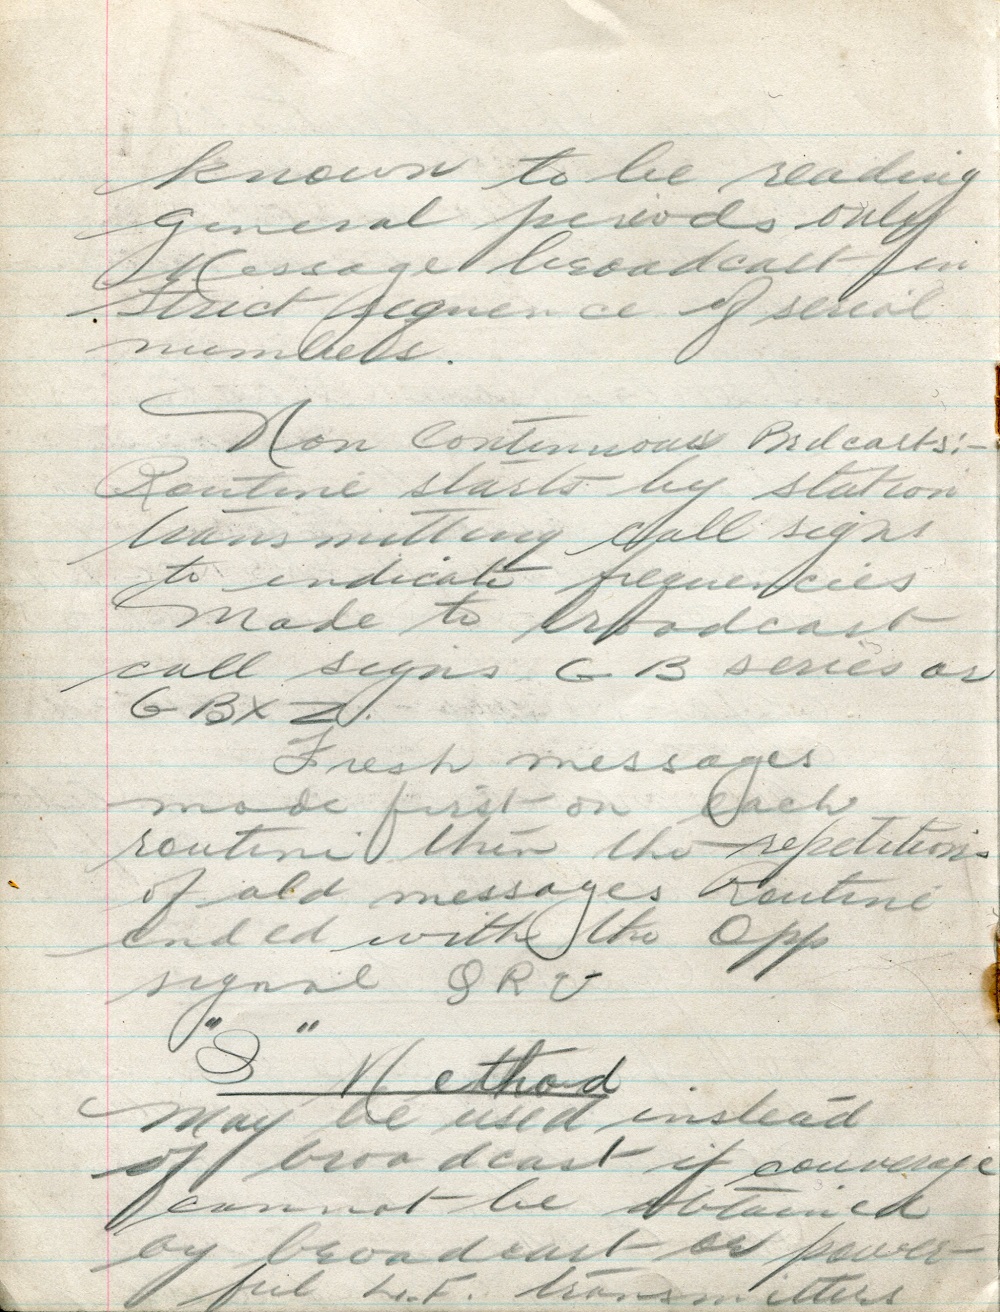 known to be reading
general periods only
Message broadcast in
strict sequence of serial
numbers.
Non Continuous Brdcasts:-
Routine starts by station
transmitting call signs
to indicate frequencies
Made to broadcast
call signs G B series or
G B X Z.
Fresh messages
made first on each
routine then the repetitions
of old messages Routine
ended with the Opp
signal QRU
"I"
Method
May be used instead
of broadcast if converage
cannot be obtained
by broadcast or power-
ful H.F. transmitters